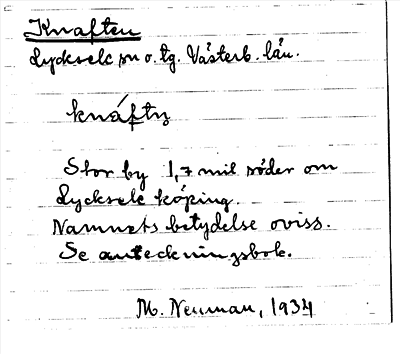 Knaften
Lycksele sn o. tg. Västerb. län.
knáftn̥
Stor by 1,7 mil söder om
Lycksele köping.
Namnets betydelse oviss.
Se anteckningsbok.
M. Neuman, 1934